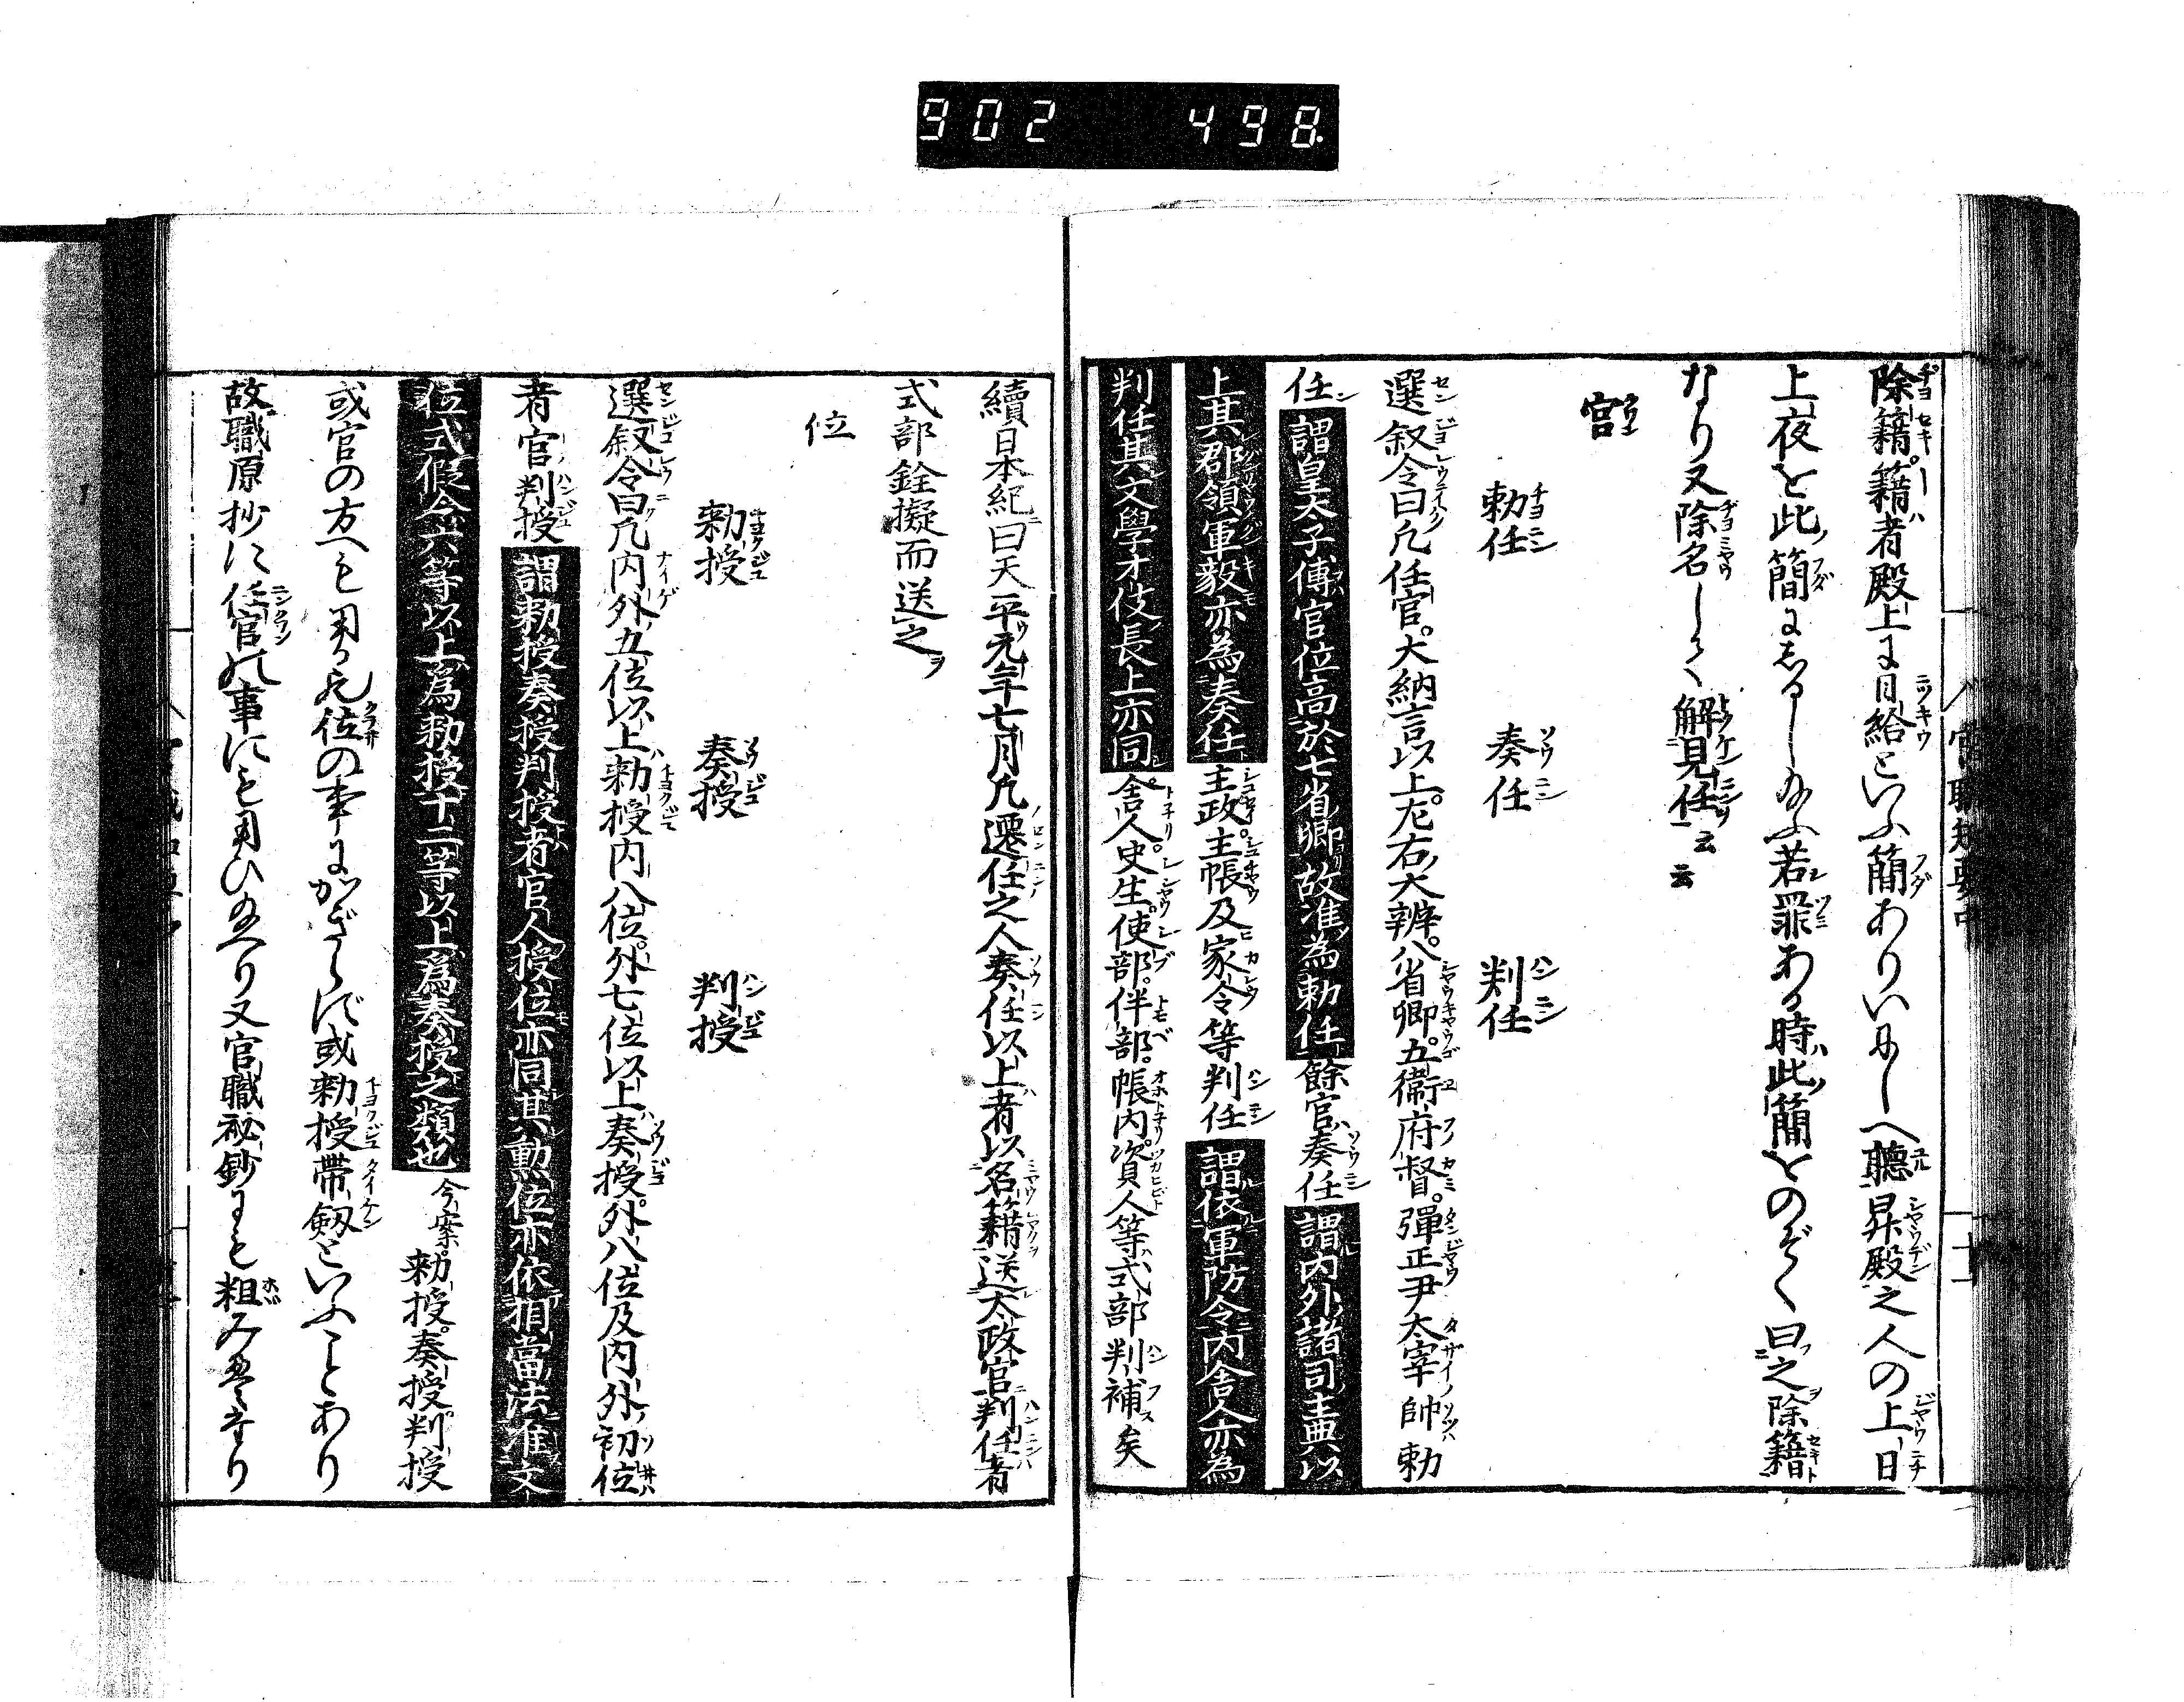 902 498
除籍籍者殿上に日給といふ簡ありいにしへ聽昇殿之人の上日
上夜を此簡にしるし給ふ若罪ある時此簡をのぞく曰之除籍
なり又除名して解見任云云
官
勅任 奏任 判任
選叙令曰凡任官大納言以上左右大辨八省卿五衛府督彈正尹太宰帥勅
任謂皇太子傅官位高於七省卿故准為勅任餘官奏任謂内外諸司主典以
上其郡領軍毅亦為奏任主政主帳及家令等判任謂依軍防令内舎人亦為
判任其文學才伎長上亦同舎人史生使部伴部帳内資人等式部判補矣
續日本紀曰天平元年七月凡遷任之人奏任以上者以名籍送太政官判任者
式部銓擬而送之
位
勅授 奏授 判授
選叙令曰凡内外五位以上勅授内八位外七位以上奏授外八位及内外初位
者官判授謂勅授奏授判授者官人授位亦同其勲位亦依相當法准文
位式假令六等以上為勅授十二等以上為奏授之類也今案勅授奏授判授
或官の方へも用る凡位の事にかぎらず或勅授帶劔といふことあり
故職原抄に任官の事にも用ひ給へり又官職秘鈔にも粗みえたり